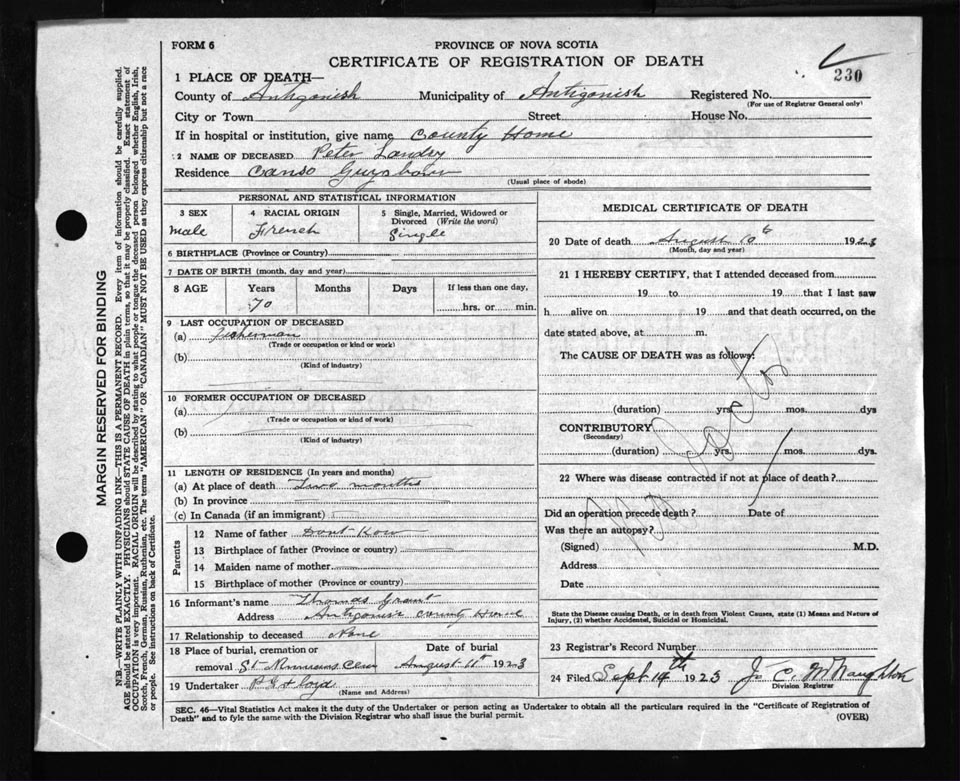 FORM 6
PROVINCE OF NOVA SCOTIA
CERTIFICATE OF REGISTRATION OF DEATH
230
1 PLACE OF DEATH—
County of Antigonish Municipality of Antigonish Registered No.
(For use of Registrar General only)
City or Town Street House No.
If in hospital or institution, give name County Home
2 NAME OF DECEASED Peter Landry
Residence Canso Guysboro
(Usual place of abode)
PERSONAL AND STATISTICAL INFORMATION
3 SEX
male
4 RACIAL ORIGIN
French
5 Single, Married, Widowed or
Divorced (Write the word)
Single
6 BIRTHPLACE (Province or Country)
7 DATE OF BIRTH (month, day and year)
8 AGE Years Months Days If less than one day,
70 hrs. or min.
9 LAST OCCUPATION OF DECEASED
(a) Fisherman
(Trade or occupation or kind or work)
(b)
(Kind of industry)
10 FORMER OCCUPATION OF DECEASED
(a)
(Trade or occupation or kind of work)
(b)
(Kind of industry)
11 LENGTH OF RESIDENCE (In years and months)
(a) At place of death Two months
(b) In province
(c) In Canada (if an immigrant)
Parents
12 Name of father Dont Kow
13 Birthplace of father (Province or country)
14 Maiden name of mother
15 Birthplace of mother (Province or country)
16 Informant's name Thomas Grant
Address Antigonish County Home
17 Relationship to deceased None
18 Place of burial, cremation or Date of burial
removal St August 11th 1923
19 Undertaker
(Name and Address)
MEDICAL CERTIFICATE OF DEATH
20 Date of death August 10 192
(Month, day and year)
21 I HEREBY CERTIFY, that I attended deceased from
19 to 19 that I last saw
h alive on 19 and that death occurred, on the
date stated above, at m.
The CAUSE OF DEATH was as follows:
No Doctor
(duration) yrs. mos. dys
CONTRIBUTORY
(Secondary)
(duration) yrs. mos. dys.
22 Where was disease contracted if not at place of death?
Did an operation precede death? Date of
Was there an autopsy?
(Signed) M.D.
Address
Date
State the Disease causing Death, or in death from Violent Causes, state (1) Means and Nature of
Injury, (2) whether Accidental, Suicidal or Homicidal.
23 Registrar's Record Number
24 Filed Sept 14th 1923 J. C. McNaughton
Division Registrar
SEC. 46—Vital Statistics Act makes it the duty of the Undertaker or person acting as Undertaker to obtain all the particulars required in the "Certificate of Registration of
Death" and to fyle the same with the Division Registrar who shall issue the burial permit.
(OVER)
MARGIN RESERVED FOR BINDING
N.B.—WRITE PLAINLY WITH UNFADING INK—THIS IS A PERMANENT RECORD. Every item of information should be carefully supplied.
AGE should be stated EXACTLY. PHYSICIANS should STATE CAUSE OF DEATH in plain terms, so that it may be properly classified. Exact statement of
OCCUPATION is very important. RACIAL ORIGIN will be described by stating to what people or tongue the deceased person belonged whether English, Irish,
Scotch, French, German, Russian, Ruthenian, etc. The terms "AMERICAN" OR "CANADIAN" MUST NOT BE USED as they express citizenship but not a race
or people. See instructions on back of Certificate.